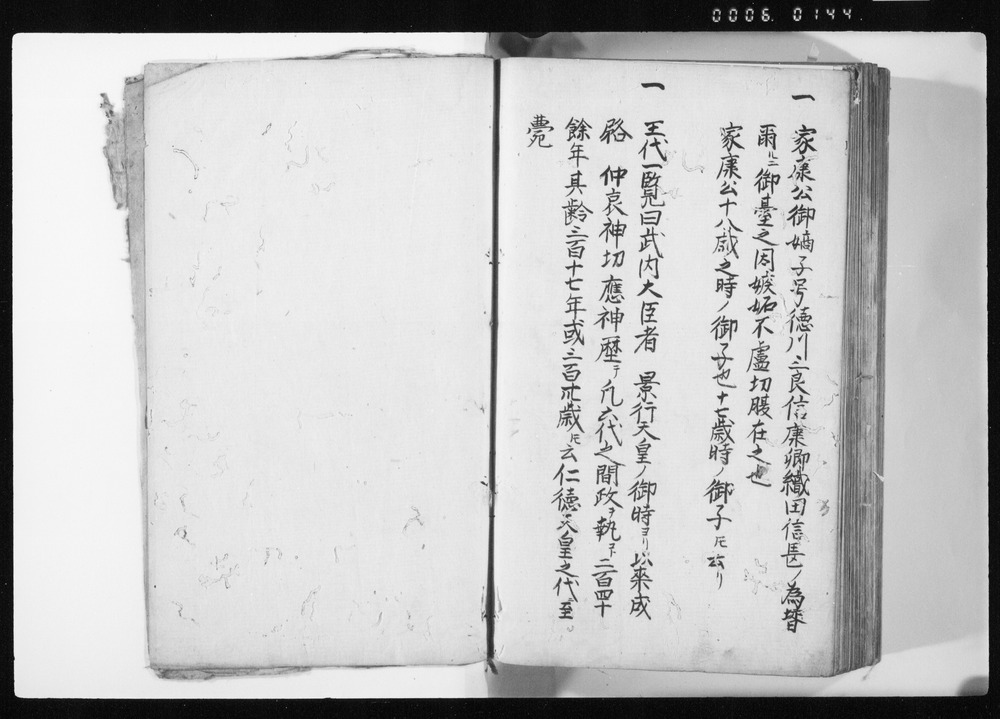 0006 0144
一 家康公御嫡子号徳川三良信康卿織田信長ノ為聟
爾ルニ御臺之因嫉妬不盧切腹在之也
家康公十八歳之時ノ御子也十七歳時ノ御子ㇳモ云り
一 王代一覧曰武内大臣者 景行天皇ノ御時ヨリ以来成
務 仲哀神功應神歴テ凡六代之間政ヲ執コト二百四十
餘年其齢三百十七年或三百卅歳ㇳモ云仁徳天皇之代至
薨